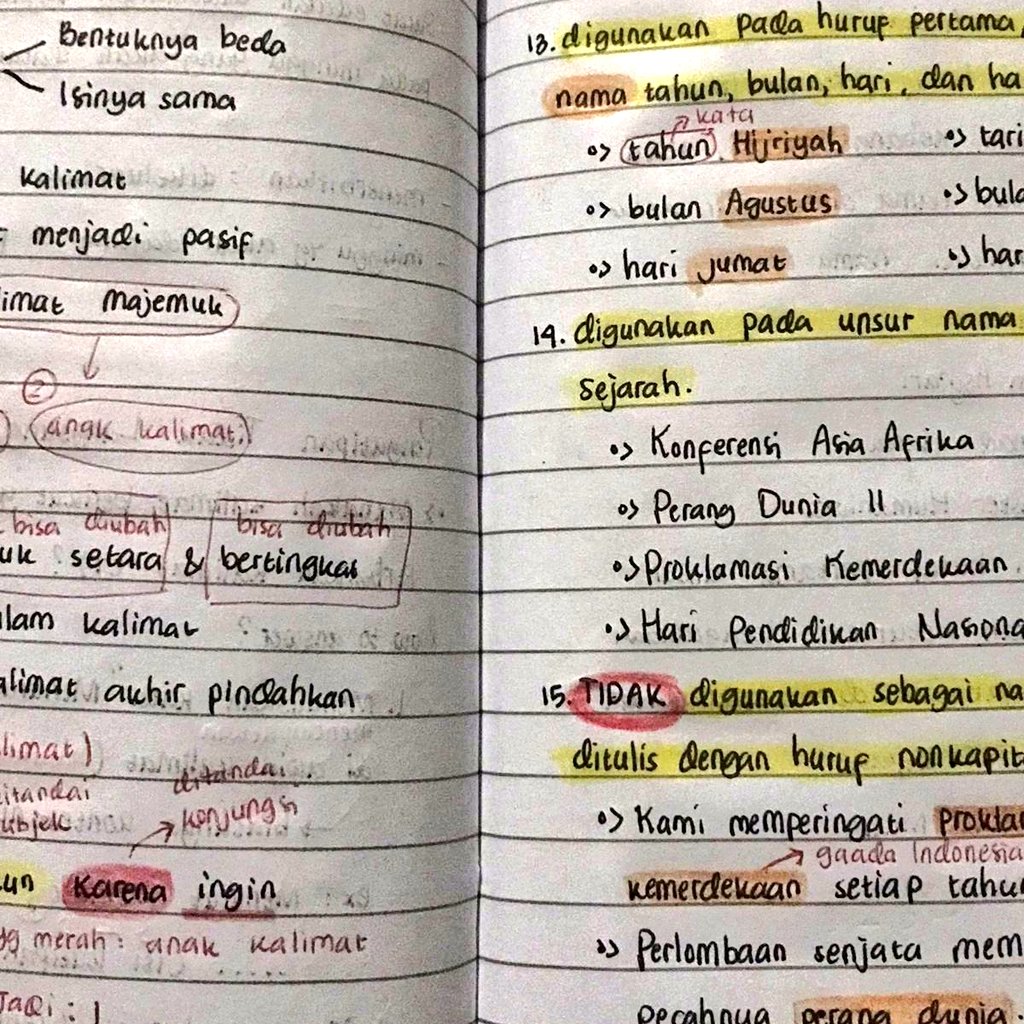 Bentuknya beda
Isinya sama
kalimat
menjadi pasif
imat majemuk
2
anak kalimat.
bisa diubah bisa diubah
uk setara & bertingkat
lam kalimat
alimat akhir pindahkan
limat)
itandai ditandai
ubjek konjungsi
un karena ingin
yg merah : anak kalimat
Jadi : 1
13. digunakan pada huruf pertama,
nama tahun, bulan, hari, dan ha
kata
tahun Hijriyah tari
bulan Agustus bula
hari jumat har
14. digunakan pada unsur nama
sejarah.
Konferensi Asia Afrika
Perang Dunia II
Proklamasi Kemerdekaan
Hari Pendidikan Nasiona
15. TIDAK digunakan sebagai na
ditulis dengan huruf nonkapit
Kami memperingati prokla
gaada Indonesia
kemerdekaan setiap tahun
Perlombaan senjata mem
pecahnya perang dunia.